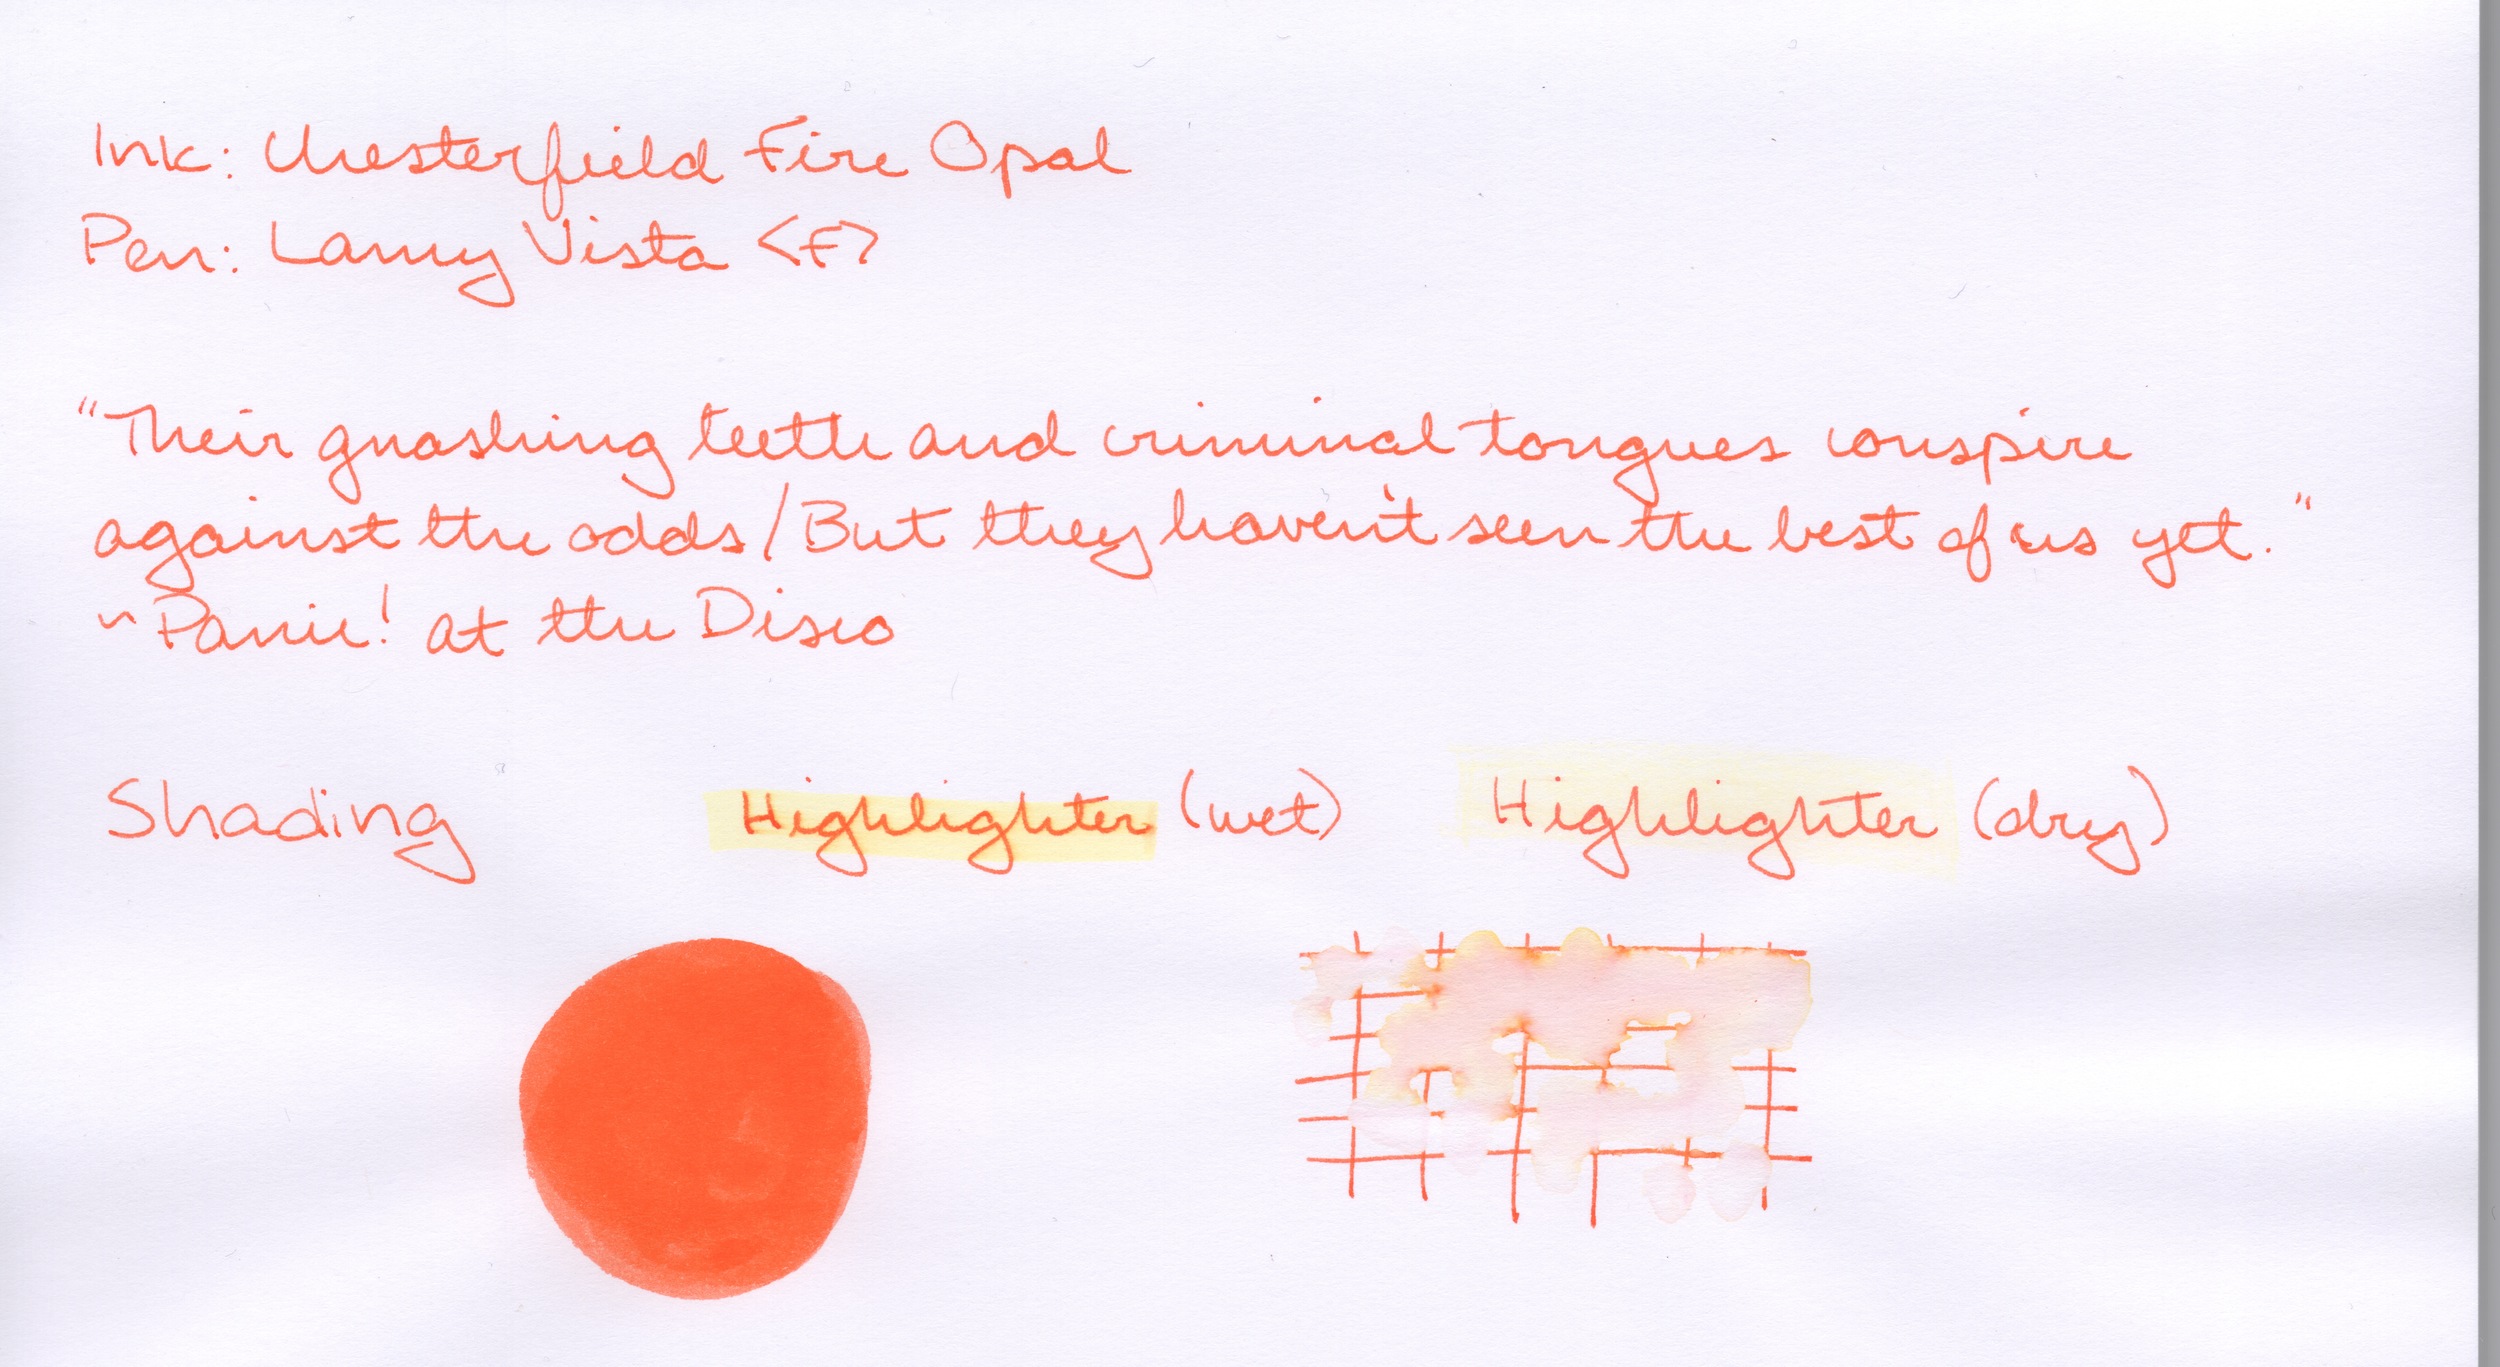 Ink: Chesterfield Fire Opal
Pen: Lamy Vista <F>
"Their gnashing teeth and criminal tongues conspire
against the odds/But they haven't seen the best of us yet."
~Panic! at the Disco
Shading Highlighter (wet) Highlighter (dry)